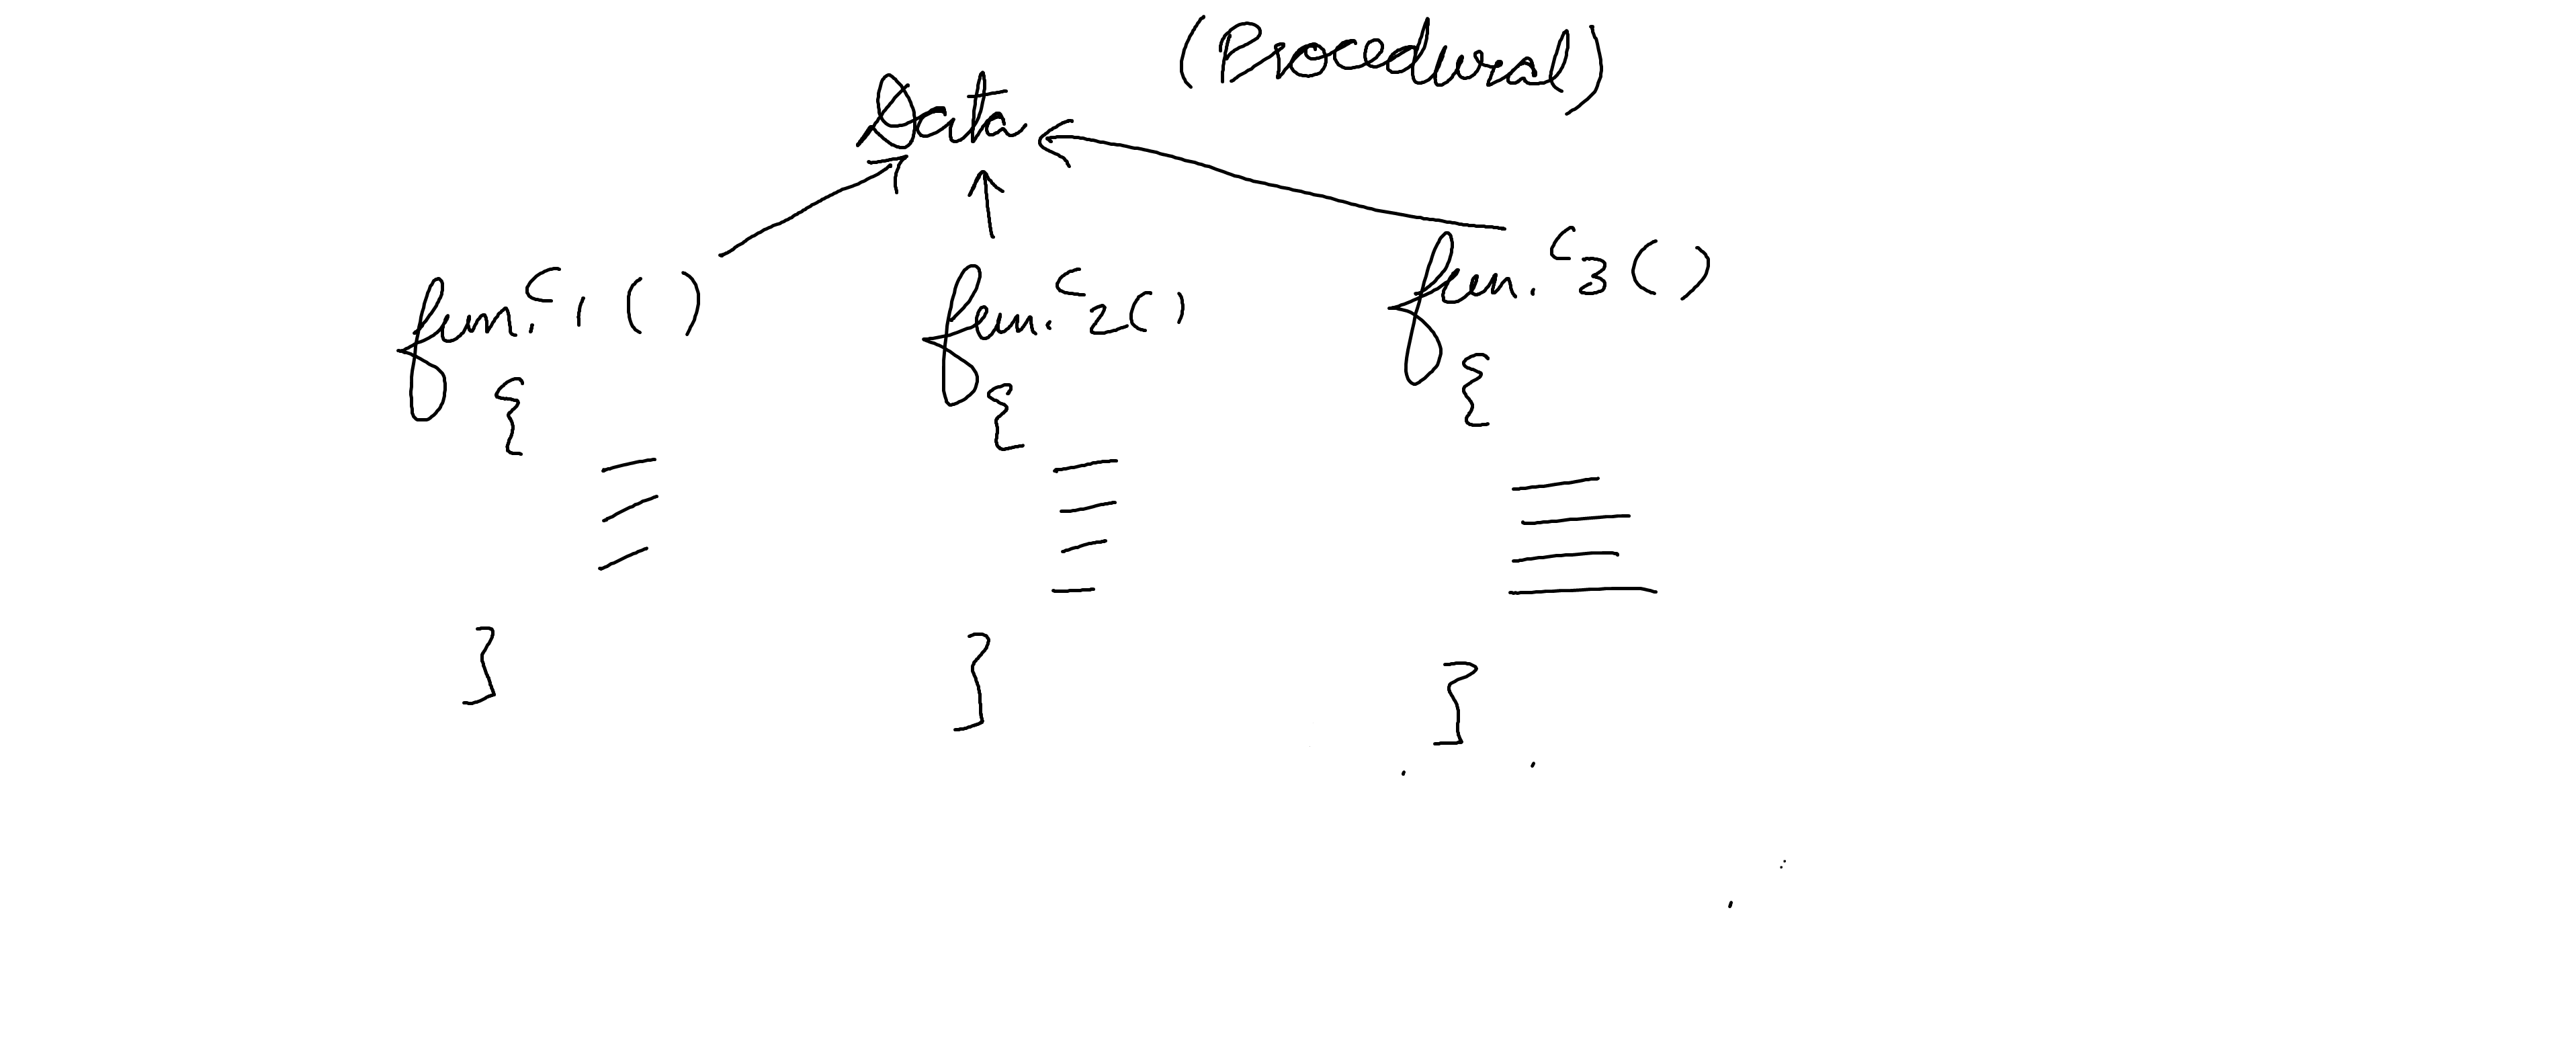 (Procedural)
Data
fun.c1 () fun.c2() fun.c3()
{ { {
} } }